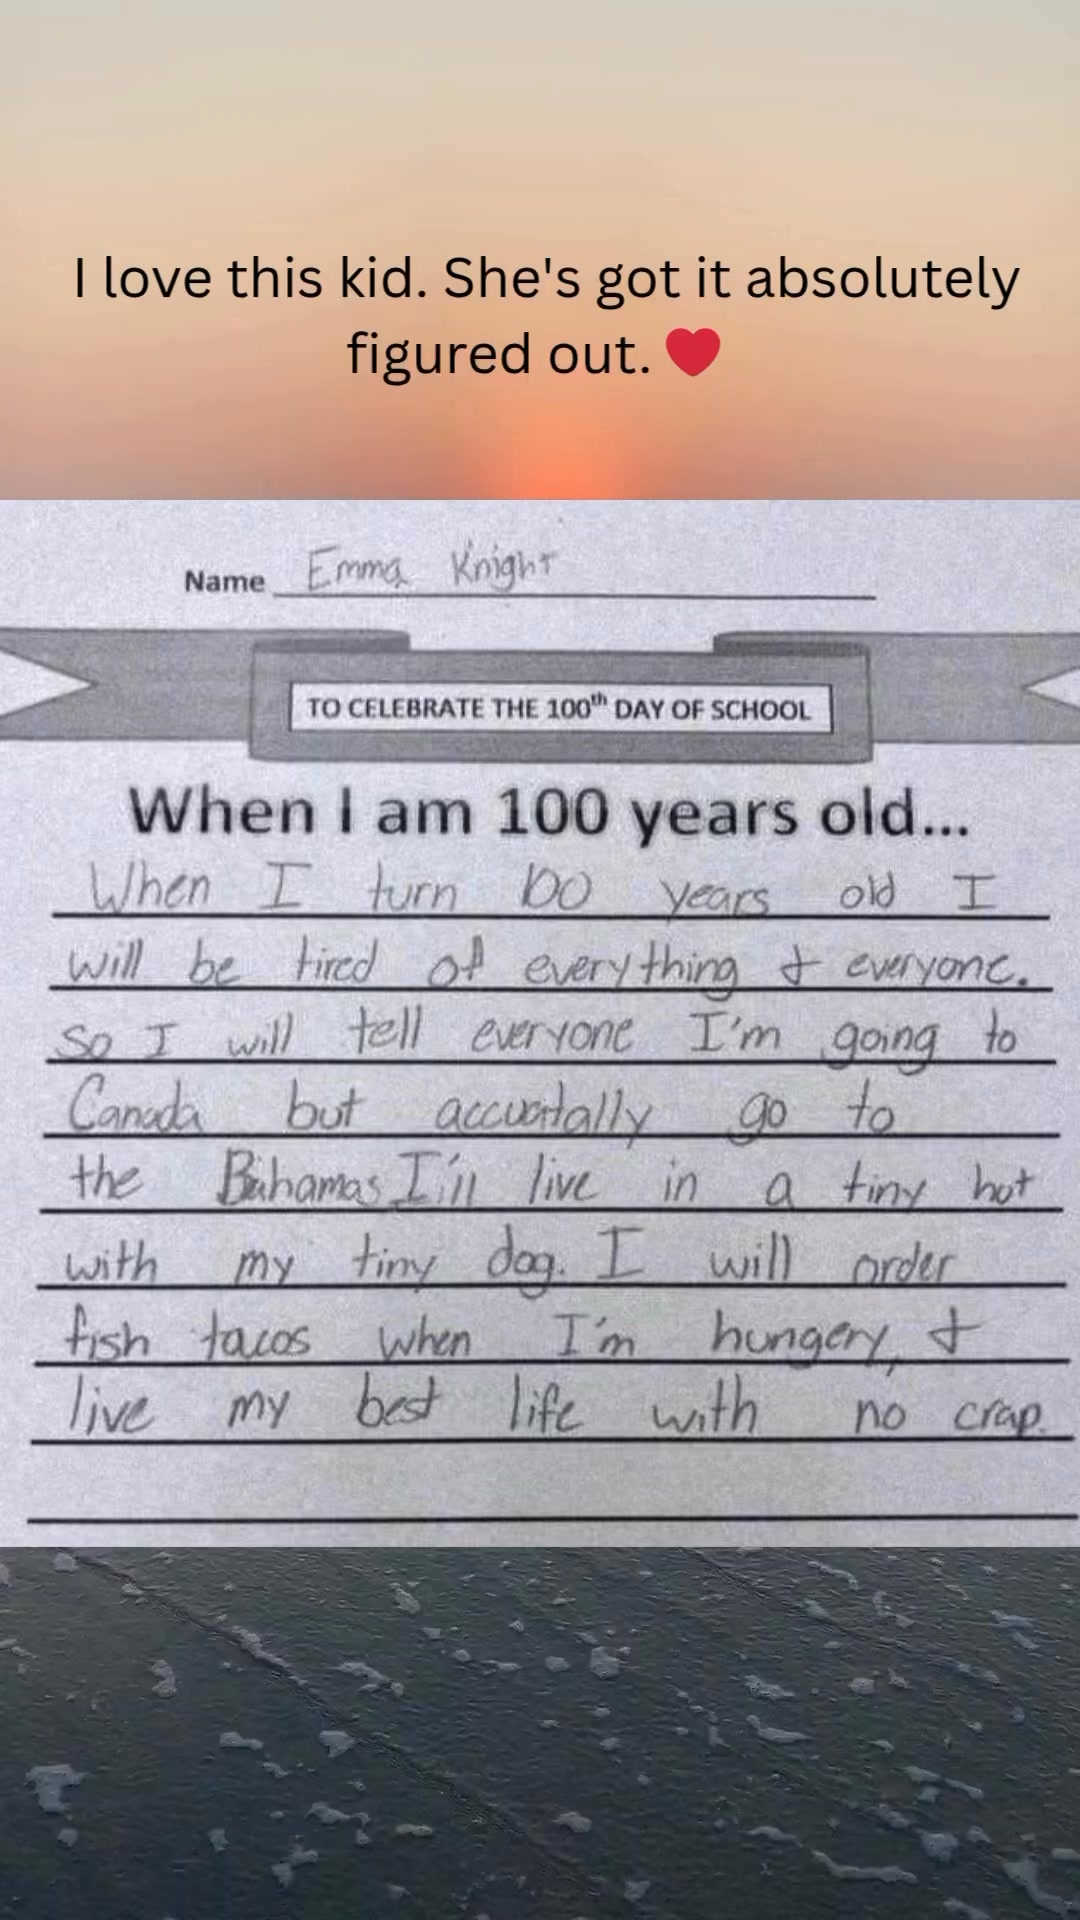 I love this kid. She's got it absolutely
figured out. ❤️
Name Emma Knight
TO CELEBRATE THE 100th DAY OF SCHOOL
When I am 100 years old...
When I turn 100 years old I
will be tired of everything & everyone.
so I will tell everyone I'm going to
Canada but accuatally go to
the Bahamas I'll live in a tiny hut
with my tiny dog. I will order
fish tacos when I'm hungery, &
live my best life with no crap.